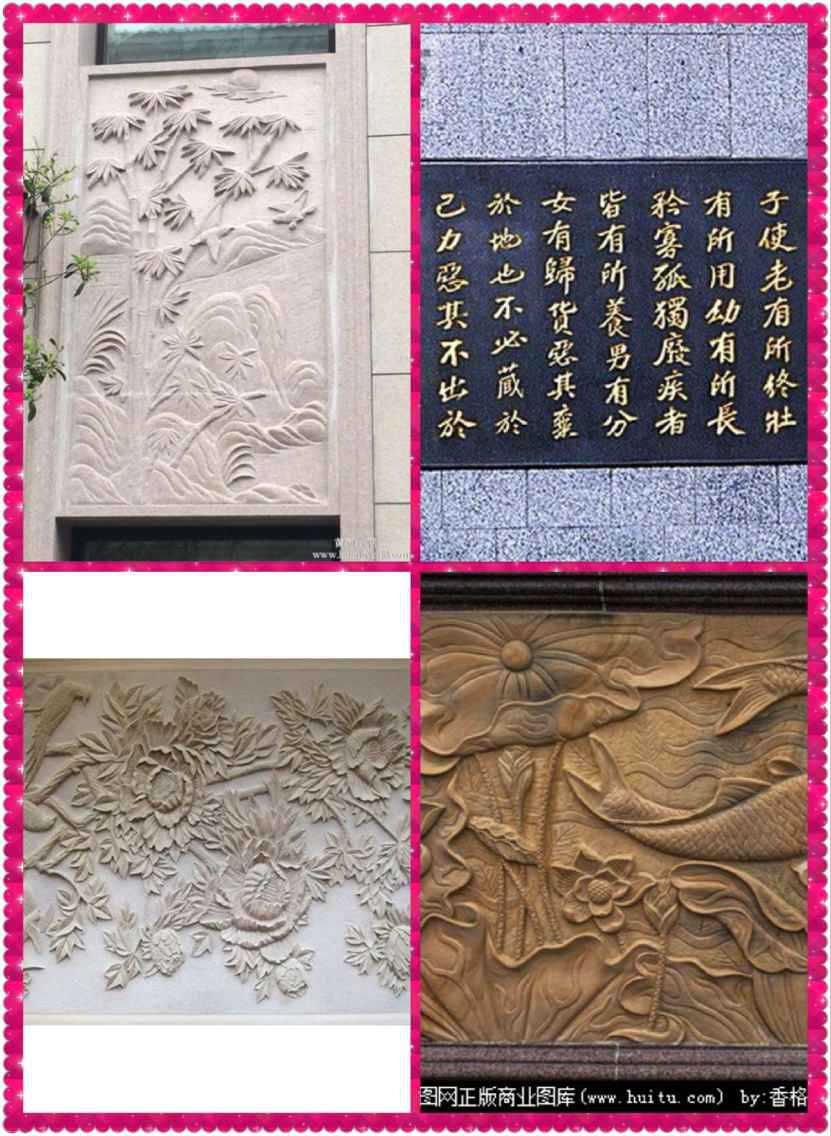 子使老有所終壯
有所用幼有所長
矜寡孤獨廢疾者
皆有所養男有分
女有歸貨惡其棄
於地也不必藏於
己力惡其不出於
图网正版商业图库(www.huitu.com) by:香格